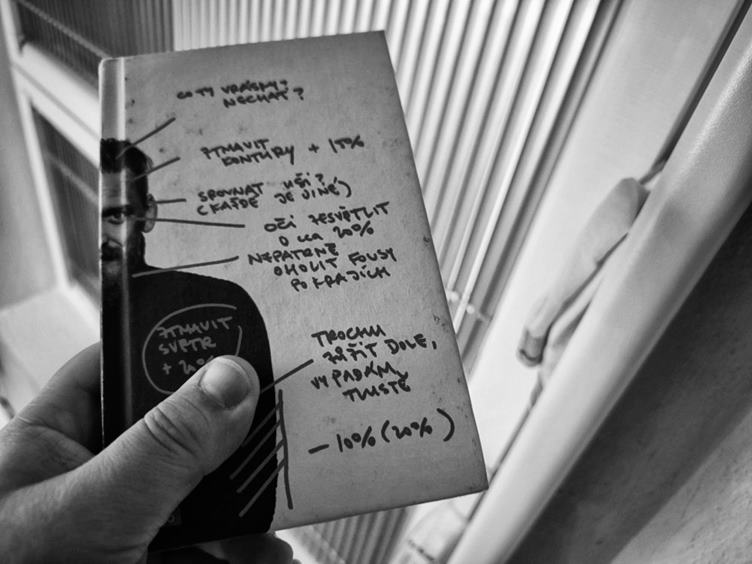 CO TY VRÁSKY?
NECHAT?
ZTMAVIT
KONTURY + 15%
SROVNAT UŠI?
(KAŽDÉ JE JINÉ)
OČI ZESVĚTLIT
O CCA 20%
NEPATRNĚ
OHOLIT FOUSY
PO KRAJÍCH
ZTMAVIT
SVETR
+ 20%
TROCHU
ZÚŽIT DOLE,
VYPADÁM
TLUSTĚ
- 10% (20%)